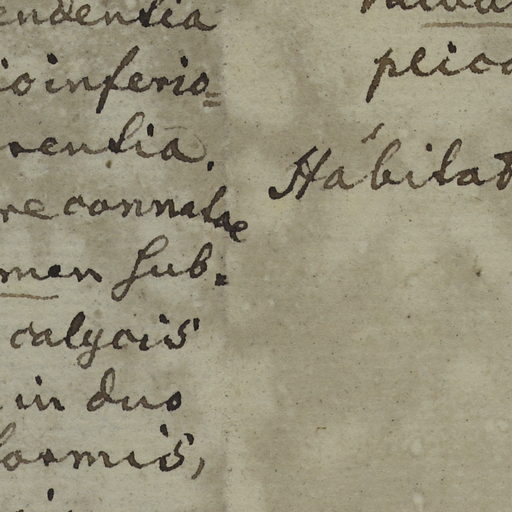 endentia
ioinferio=
rentia.
re connatae
men sub=
calycis
in duo
formis,
plica
Habitat